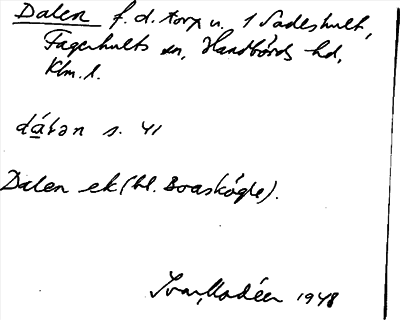 Dalen f. d. torp u. 1 Sadeshult,
Fagerhults sn, Handbörds hd,
Klm. l.
dá̱lən s. 41
Dalen ek (bl. Boaskögle).
Ivar Modéer 1948